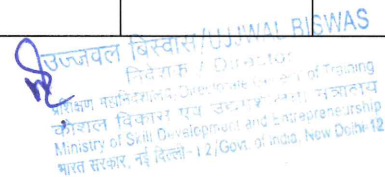 उज्जवल बिस्वास/UJJWAL BISWAS
निदेशक / Director
प्रशिक्षण महानिदेशालय, Directorate of Training
कौशल विकास एवं मंत्रालय
Ministry of Skill Development and Entrepreneurship
भारत सरकार, नई दिल्ली-12/Govt. of India, New Delhi-12